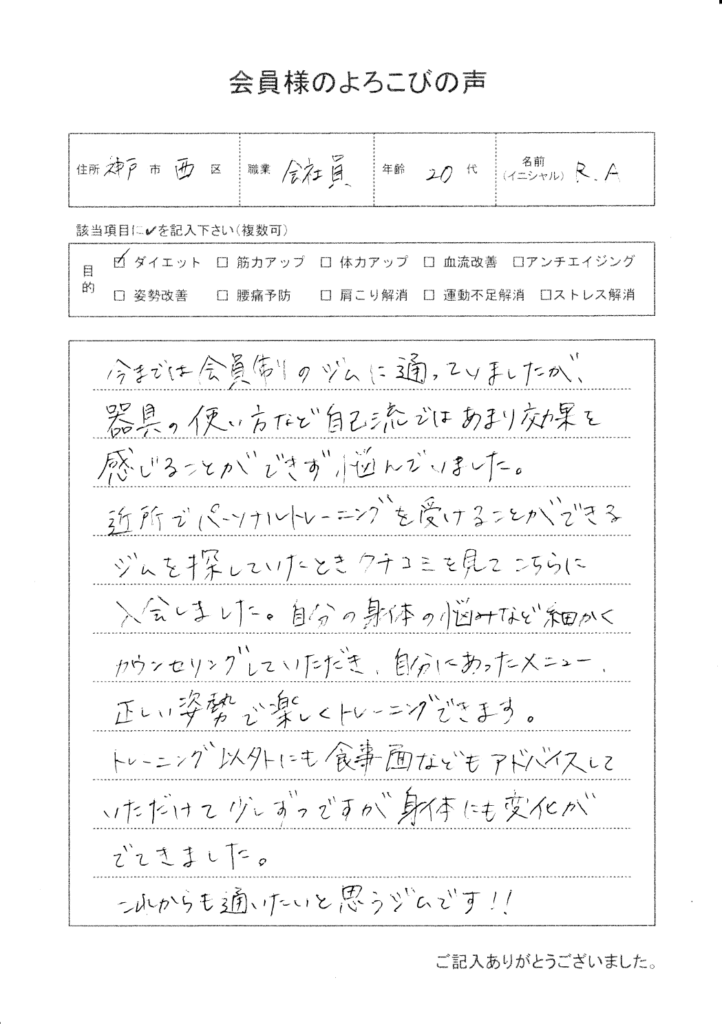 会員様のよろこびの声
住所 神戸 市 西 区 職業 会社員 年齢 20 代 名前(イニシャル) R.A
該当項目に✔を記入下さい(複数可)
目的
☑ ダイエット □ 筋力アップ □ 体力アップ □ 血流改善 □アンチエイジング
□ 姿勢改善 □ 腰痛予防 □ 肩こり解消 □ 運動不足解消 □ストレス解消
今までは会員制のジムに通っていましたが、
器具の使い方など自己流ではあまり効果を
感じることができず悩んでいました。
近所でパーソナルトレーニングを受けることができる
ジムを探していたときクチコミを見てこちらに
入会しました。自分の身体の悩みなど細かく
カウンセリングしていただき、自分にあったメニュー、
正しい姿勢で楽しくトレーニングできます。
トレーニング以外にも食事面などもアドバイスして
いただけて少しずつですが身体にも変化が
でてきました。
これからも通いたいと思うジムです!!
ご記入ありがとうございました。